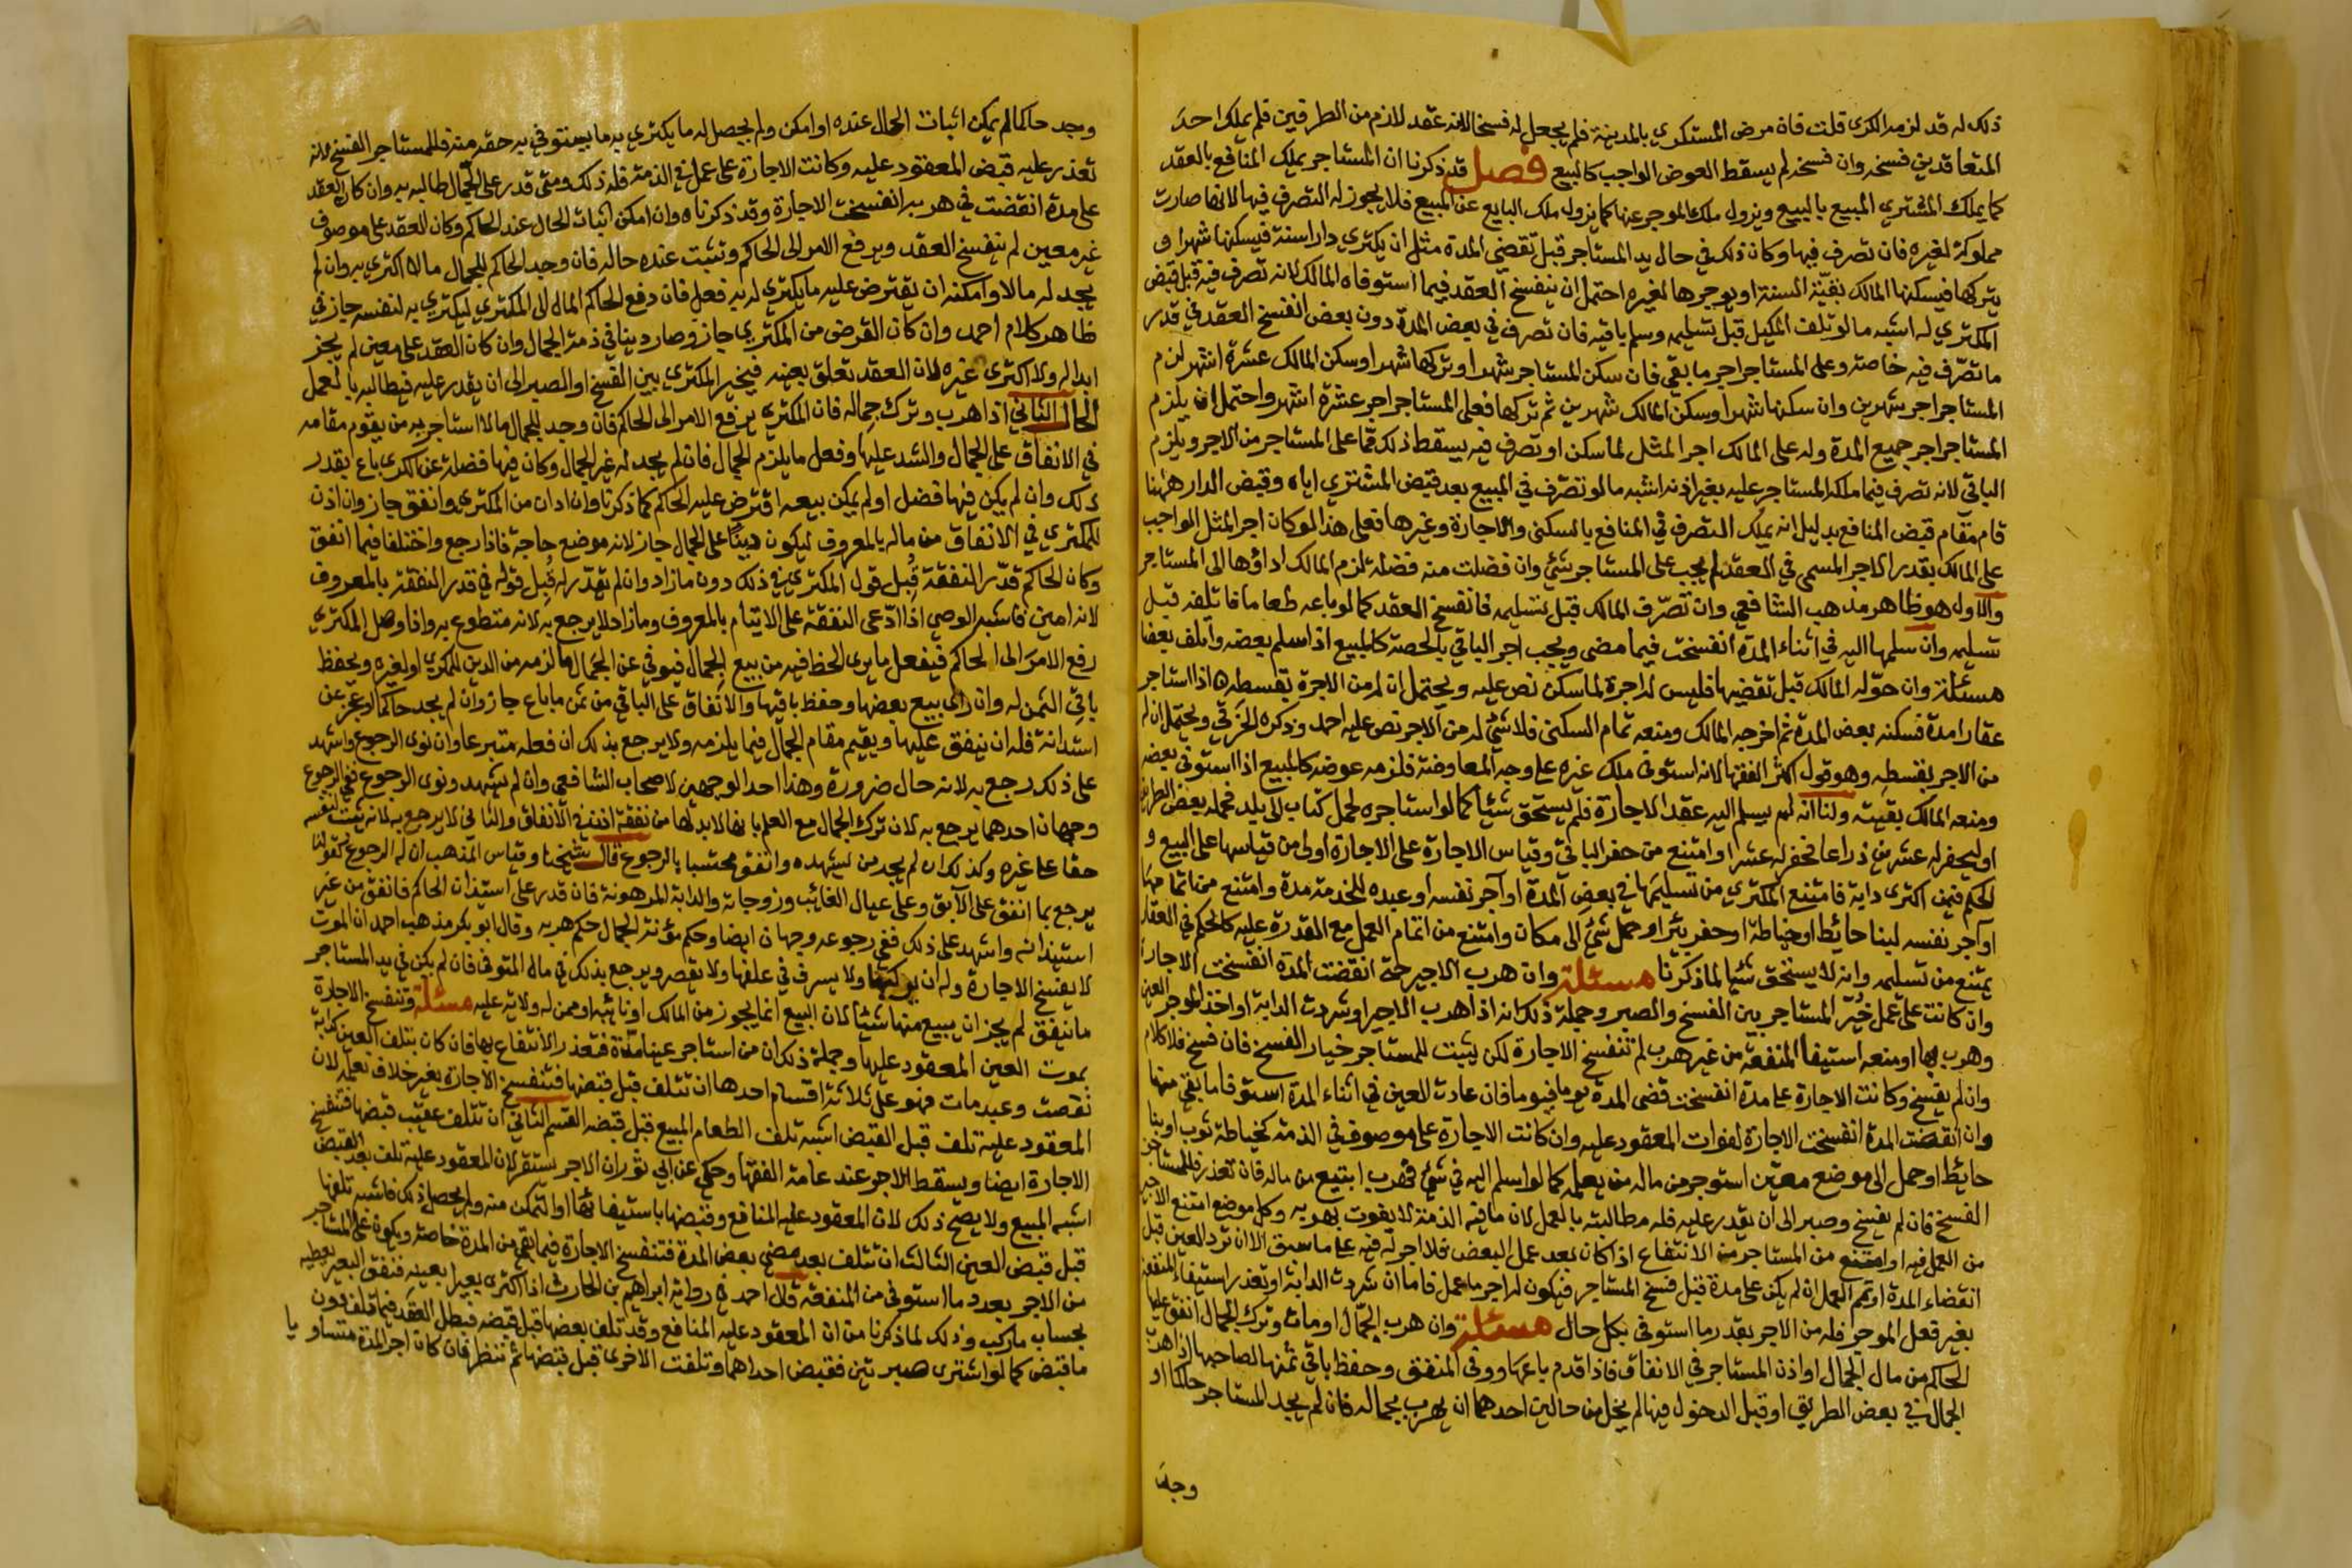 ذلك له قد لزمه الكرى قلت فان مرض المستكري بالمدينة فلم يجعل له فسخا لانه عقد لازم من الطرفين فلم يملك احد
المتعاقدين فسخه وان فسخه لم يسقط العوض الواجب كالبيع فصل قد ذكرنا ان المستاجر يملك المنافع بالعقد
كما يملك المشتري المبيع بالبيع ويزول ملك الموجر عنها كما يزول ملك البايع عن المبيع فلا يجوز له التصرف فيها لانها صارت
مملوكة لغيره فان تصرف فيها وكان ذلك في حال يد المستاجر قبل تقضي المدة مثل ان يكتري دارا سنة فيسكنها شهرا و
يتركها فيسكنها المالك بقية السنة او يوجرها لغيره احتمل ان ينفسخ العقد فيما استوفاه المالك لانه تصرف فيه قبل قبض
المكتري له اشبه ما لو تلف المكيل قبل تسليمه وسلم باقيه فان تصرف في بعض المدة دون بعض انفسخ العقد في قدر
ما تصرف فيه خاصة وعلى المستاجر اجر ما بقي فان سكن المستاجر شهرا وتركها شهرا وسكن المالك عشرة اشهر لزم
المستاجر اجر شهرين وان سكنها شهرا وسكن المالك شهرين ثم تركها فعلى المستاجر اجر عشرة اشهر واحتمل ان يلزم
المستاجر اجر جميع المدة وله على المالك اجر المثل لما سكن او تصرف فيه يسقط ذلك مما على المستاجر من الاجر ويلزم
الباقي لانه تصرف فيما ملكه المستاجر عليه بغير اذنه اشبه ما لو تصرف في المبيع بعد قبض المشتري اياه وقبض الدار ههنا
قام مقام قبض المنافع بدليل انه يملك التصرف في المنافع بالسكنى والاجارة وغيرها فعلى هذا لو كان اجر المثل الواجب
على المالك بقدر الاجر المسمى في العقد لم يجب على المستاجر شئ وان فضلت منه فضلة لزم المالك اداؤها الى المستاجر
والاول هو ظاهر مذهب الشافعي وان تصرف المالك قبل تسليمه فانفسخ العقد كما لو باعه طعاما فاتلفه قبل
تسليمه وان سلمها اليه في اثناء المدة انفسخت فيما مضى ويجب اجر الباقي بالحصة كالمبيع اذا سلم بعضه واتلف بعضا
مسئلة وان حوله المالك قبل تقضيها فليس له اجرة لما سكن نص عليه ويحتمل ان له من الاجرة بقسطه اذا استاجر
عقارا مدة فسكنه بعض المدة ثم اخرجه المالك ومنعه تمام السكنى فلا شئ له من الاجر نص عليه احمد وذكره الخرقي ويحتمل ان له
من الاجر بقسطه وهو قول اكثر الفقها لانه استوفى ملك غيره على وجه المعاوضة فلزمه عوضه كالمبيع اذا استوفى بعضه
ومنعه المالك بقيته ولنا انه لم يسلم اليه عقد الاجارة فلم يستحق شيئا كما لو استاجره لحمل كتاب الى بلد فحمله بعض الطريق
او ليحفر له عشرين ذراعا فحفر له عشرا وامتنع من حفر الباقي وقياس الاجارة على الاجارة اولى من قياسها على البيع و
الحكم فيمن اكترى دابة فامتنع المكتري من تسليمها في بعض المدة او آجر نفسه او عبده للخدمة مدة وامتنع من اتمامها
او آجر نفسه لبنا حائط او خياطة او حفر بئر او حمل شئ الى مكان وامتنع من اتمام العمل مع القدرة عليه كالحكم في العقار
يمتنع من تسليمه وانه لا يستحق شيا لما ذكرنا مسئلة وان هرب الاجير حتى انقضت المدة انفسخت الاجارة
وان كانت على عمل خير المستاجر بين الفسخ والصبر وجملة ذلك انه اذا هرب الاجير او شردت الدابة او اخذ الموجر العين
وهرب بها او منعه استيفا المنفعة من غير هرب لم تنفسخ الاجارة لكن يثبت للمستاجر خيار الفسخ فان فسخ فلا كلام
وان لم يفسخ وكانت الاجارة على مدة انفسخت بمضي المدة يوما فيوما فان عادت العين في اثناء المدة استوفا ما بقي منها
وان انقضت المدة انفسخت الاجارة لفوات المعقود عليه وان كانت الاجارة على موصوف في الذمة كخياطة ثوب او بنا
حائط او حمل الى موضع معين استوجر من ماله من يعمله كما لو اسلم اليه في شئ فهرب ابتيع من ماله فان تعذر فللمستاجر
الفسخ فان لم يفسخ وصبر الى ان يقدر عليه فله مطالبته بالعمل لان ما في الذمة لا يفوت بهربه وكل موضع امتنع الاجير
من العمل فيه او امتنع من المستاجر من الانتفاع اذا كان بعد عمل البعض فلا اجر له فيه على ما سبق الا ان ترد العين قبل
انقضاء المدة او يتم العمل ان لم يكن على مدة قبل فسخ المستاجر فيكون له اجر ما عمل فاما ان شردت الدابة او تعذر استيفاء المنفعة
بغير فعل الموجر فله من الاجر بقدر ما استوفى بكل حال مسئلة وان هرب الجمال او مات وترك الجمال انفق عليها
الحاكم من مال الجمال او اذن للمستاجر في الانفاق فاذا قدم باعها ووفى المنفق وحفظ باقي ثمنها لصاحبها اذا هرب
الجمال في بعض الطريق او قبل الدخول فيها لم يخل من حالين احدهما ان يهرب بجماله فان لم يجد المستاجر حاكما او
وجد
وجد حاكما لم يمكن اثبات الحال عنده او امكن ولم يحصل له ما يكتري به ما يستوفي به حقه منه فللمستاجر الفسخ لانه
تعذر عليه قبض المعقود عليه وكانت الاجارة على عمل في الذمة فله ذلك ومتى قدر على الجمال طالبه به وان كان العقد
على مدة انقضت في هربه انفسخت الاجارة وقد ذكرناه وان امكن اثبات الحال عند الحاكم وكان العقد على موصوف
غير معين لم ينفسخ العقد ويرفع الامر الى الحاكم وتثبت عنده حاله فان وجد الحاكم للجمال مالا اكترى به وان لم
يجد له مالا وامكنه ان يقترض عليه ما يكتري له به فعل فان دفع الحاكم المال الى المكتري ليكتري به لنفسه جاز في
ظاهر كلام احمد وان كان القرض من المكتري جاز وصار دينا في ذمة الجمال وان كان العقد على معين لم يجز
ابداله ولا اكترى غيره لان العقد تعلق بعينه فيخير المكتري بين الفسخ او الصبر الى ان يقدر عليه فيطالبه بالعمل
الحال الثاني اذا هرب وترك جماله فان المكتري يرفع الامر الى الحاكم فان وجد للجمال مالا استاجر به من يقوم مقامه
في الانفاق على الجمال والشد عليها وفعل ما يلزم الجمال فان لم يجد له غير الجمال وكان فيها فضلة عن الكرى باع بقدر
ذلك وان لم يكن فيها فضل او لم يمكن بيعه اقترض عليه الحاكم كما ذكرنا وان ادان من المكتري وانفق جاز وان اذن
للمكتري في الانفاق من ماله بالمعروف ليكون دينا على الجمال جاز لانه موضع حاجة فاذا رجع واختلفا فيما انفق
وكان الحاكم قدر النفقة قبل قول المكتري في ذلك دون ما زاد وان لم يقدر له قبل قوله في قدر النفقة بالمعروف
لانه امين فاشبه الوصي اذا ادعى النفقة على الايتام بالمعروف وما زاد لا يرجع به لانه متطوع به واذا وصل المكتري
رفع الامر الى الحاكم فيفعل ما يرى الحظ فيه من بيع الجمال فيوفي عن الجمال ما لزمه من الدين للمكري او لغيره ويحفظ
باقي الثمن له وان راى بيع بعضها وحفظ باقيها والانفاق على الباقي من ثمن ما باع جاز وان لم يجد حاكما او عجز عن
استدانة فله ان ينفق عليها ويقيم مقام الجمال فيما يلزمه ولا يرجع بذلك ان فعله متبرعا وان نوى الرجوع واشهد
على ذلك رجع به لانه حال ضرورة وهذا احد الوجهين لاصحاب الشافعي وان لم يشهد ونوى الرجوع ففي الرجوع
وجهان احدهما يرجع به لان ترك الجمال مع العلم بانها لا بد لها من نفقة اذن في الانفاق والثاني لا يرجع به لانه يثبت لنفسه
حقا على غيره وكذلك ان لم يجد من يشهده وانفق محتسبا بالرجوع قال شيخنا وقياس المذهب ان له الرجوع كقولنا
يرجع بما انفق على الآبق وعلى عيال الغائب وزوجاته والدابة المرهونة فان قدر على استيذان الحاكم فانفق من غير
استيذانه واشهد على ذلك ففي رجوعه وجهان ايضا وحكم مؤنة الجمال حكم هربه وقال ابو بكر مذهب احمد ان الموت
لا يفسخ الاجارة وله ان يركبها ولا يسرف في علفها ولا يقصر ويرجع بذلك في مال المتوفى فان لم يكن في يد المستاجر
ما ينفق لم يجز ان يبيع منها شيئا لان البيع انما يجوز من المالك او نائبه او ممن له ولاية عليه مسئلة وتنفسخ الاجارة
بموت العين المعقود عليها وجملة ذلك ان من استاجر عينا مدة فتعذر الانتفاع بها فان كان بتلف العين كدابة
نفقت وعبد مات فهو على ثلاثة اقسام احدها ان تتلف قبل قبضها فتنفسخ الاجارة بغير خلاف نعلمه لان
المعقود عليه تلف قبل القبض اشبه تلف الطعام المبيع قبل قبضه القسم الثاني ان تتلف عقيب قبضها فتنفسخ
الاجارة ايضا ويسقط الاجر عند عامة الفقها وحكي عن ابي ثور ان الاجر يستقر لان المعقود عليه تلف بعد القبض
اشبه المبيع ولا يصح ذلك لان المعقود عليه المنافع وقبضها باستيفائها او التمكن منه ولم يحصل ذلك فاشبه تلفها
قبل قبض العين الثالث ان تتلف بعد مضي بعض المدة فتنفسخ الاجارة فيما بقي من المدة خاصة ويكون على المستاجر
من الاجر بعدد ما استوفى من المنفعة قال احمد في رواية ابراهيم بن الحارث اذا اكترى بعيرا بعينه فنفق البعير يعطيه
بحساب ما ركب وذلك لما ذكرنا من ان المعقود عليه المنافع وقد تلف بعضها قبل قبضه فبطل العقد فيما تلف دون
ما قبض كما لو اشترى صبرتين فقبض احداهما وتلفت الاخرى قبل قبضها ثم ننظر فان كان اجر المدة متساويا